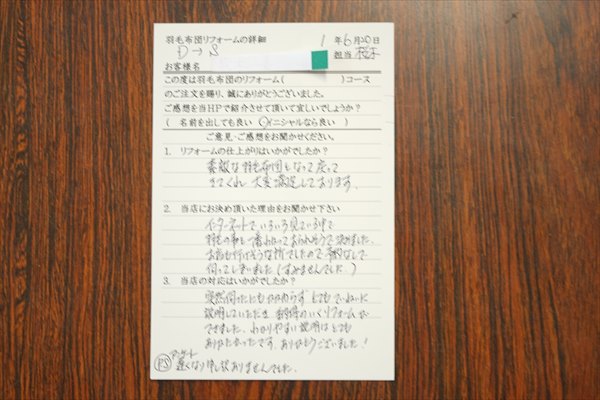 羽毛布団リフォームの詳細 1年6月20日
D→S 担当 桜木
お客様名
この度は羽毛布団のリフォーム( )コース
のご注文を賜り、誠にありがとうございました。
ご感想を当HPで紹介させて頂いて宜しいでしょうか?
( 名前を出しても良い イニシャルなら良い )
ご意見・ご感想をお聞かせください。
1. リフォームの仕上がりはいかがでしたか?
素敵な羽毛布団となって戻って
きてくれ 大変満足しております。
2. 当店にお決め頂いた理由をお聞かせ下さい
インターネットでいろいろ見ている中で
羽毛の事を一番わかっておられそうで決めました。
お店も行けそうな所でしたので予約なしで
伺ってしまいました(すみませんでした。)
3. 当店の対応はいかがでしたか?
突然伺ったにもかかわらず とてもていねいに
説明していただき 納得のいくリフォームが
できました。わかりやすい説明はとても
ありがたかったです。ありがとうございました!
PS アンケート
遅くなり申し訳ありませんでした。